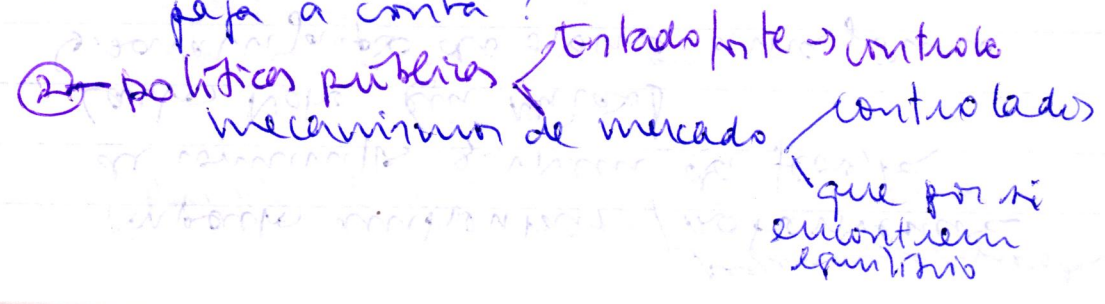 paga a conta?
2 - políticas públicas Estado forte → controle
mecanismos de mercado controlados
que por si
encontrem
equilíbrio